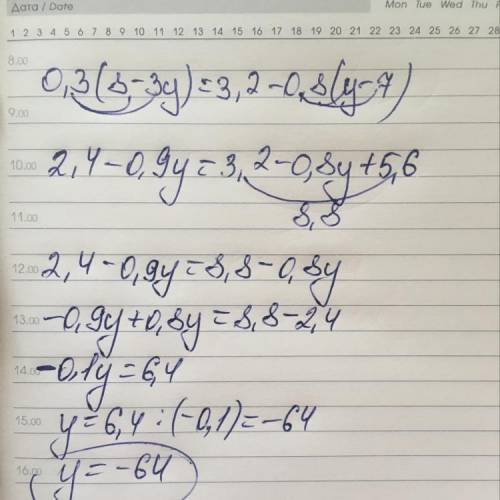 Дата / Date
Mon Tue Wed Thu
1 2 3 4 5 6 7 8 9 10 11 12 13 14 15 16 17 18 19 20 21 22 23 24 25 26 27 28
8.00
0,3(8-3y)=3,2-0,8(y-7)
9.00
10.00 2,4-0,9y=3,2-0,8y+5,6
8,8
11.00
12.00 2,4-0,9y=8,8-0,8y
13.00 -0,9y+0,8y=8,8-2,4
14.00 -0,1y=6,4
15.00 y=6,4:(-0,1)=-64
16.00 y=-64